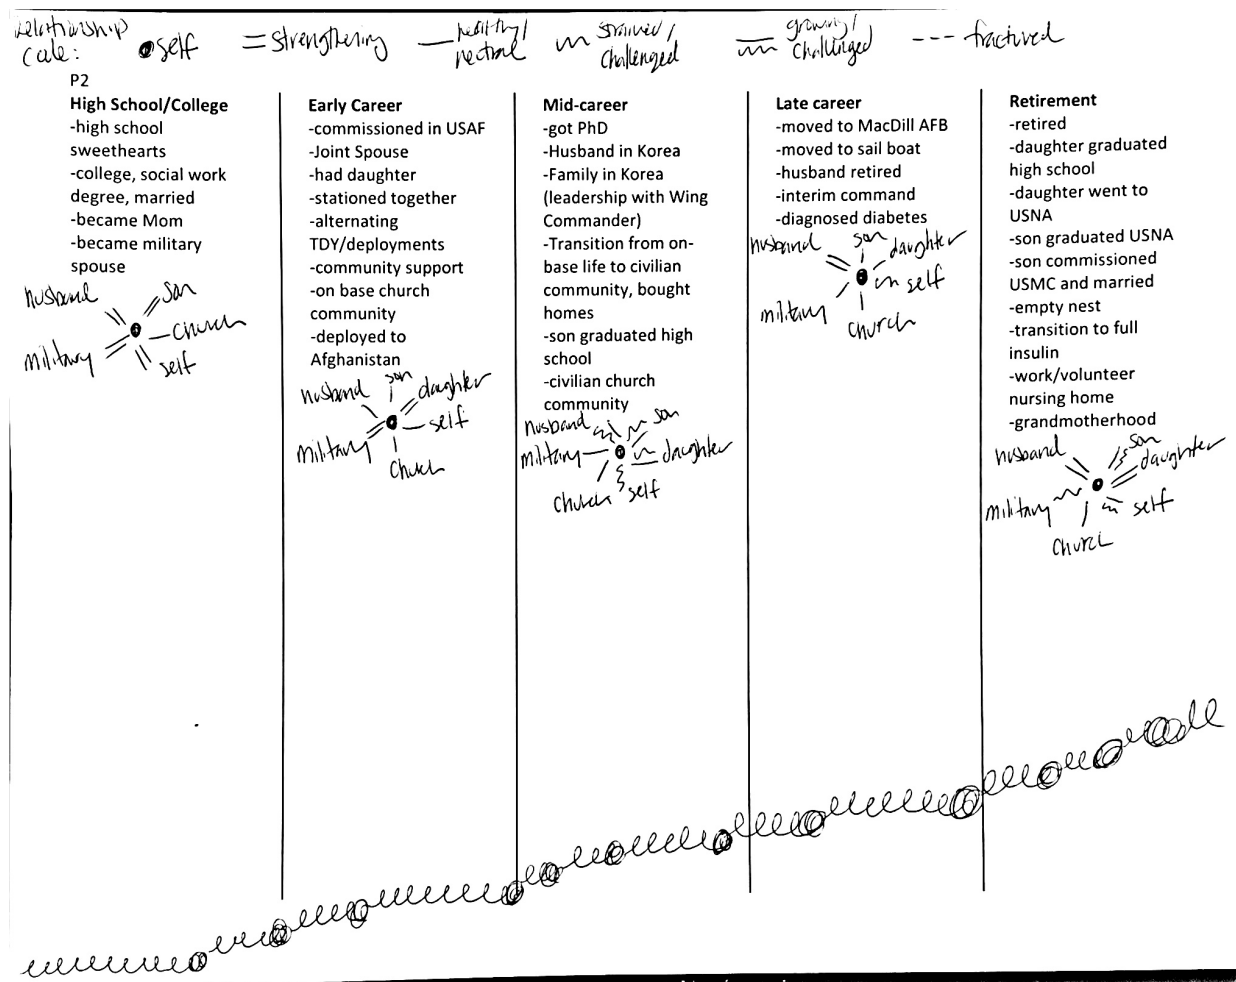 Relationship
Code:
self
strengthening
healthy/
neutral
strained/
challenged
growing/
challenged
fractured
P2
High School/College
-high school
sweethearts
-college, social work
degree, married
-became Mom
-became military
spouse
husband
son
church
military
self
Early Career
-commissioned in USAF
-Joint Spouse
-had daughter
-stationed together
-alternating
TDY/deployments
-community support
-on base church
community
-deployed to
Afghanistan
husband
son
daughter
self
military
church
Mid-career
-got PhD
-Husband in Korea
-Family in Korea
(leadership with Wing
Commander)
-Transition from on-
base life to civilian
community, bought
homes
-son graduated high
school
-civilian church
community
husband
son
military
daughter
church
self
Late career
-moved to MacDill AFB
-moved to sail boat
-husband retired
-interim command
-diagnosed diabetes
husband
son
daughter
self
military
church
Retirement
-retired
-daughter graduated
high school
-daughter went to
USNA
-son graduated USNA
-son commissioned
USMC and married
-empty nest
-transition to full
insulin
-work/volunteer
nursing home
-grandmotherhood
husband
son
daughter
military
self
church